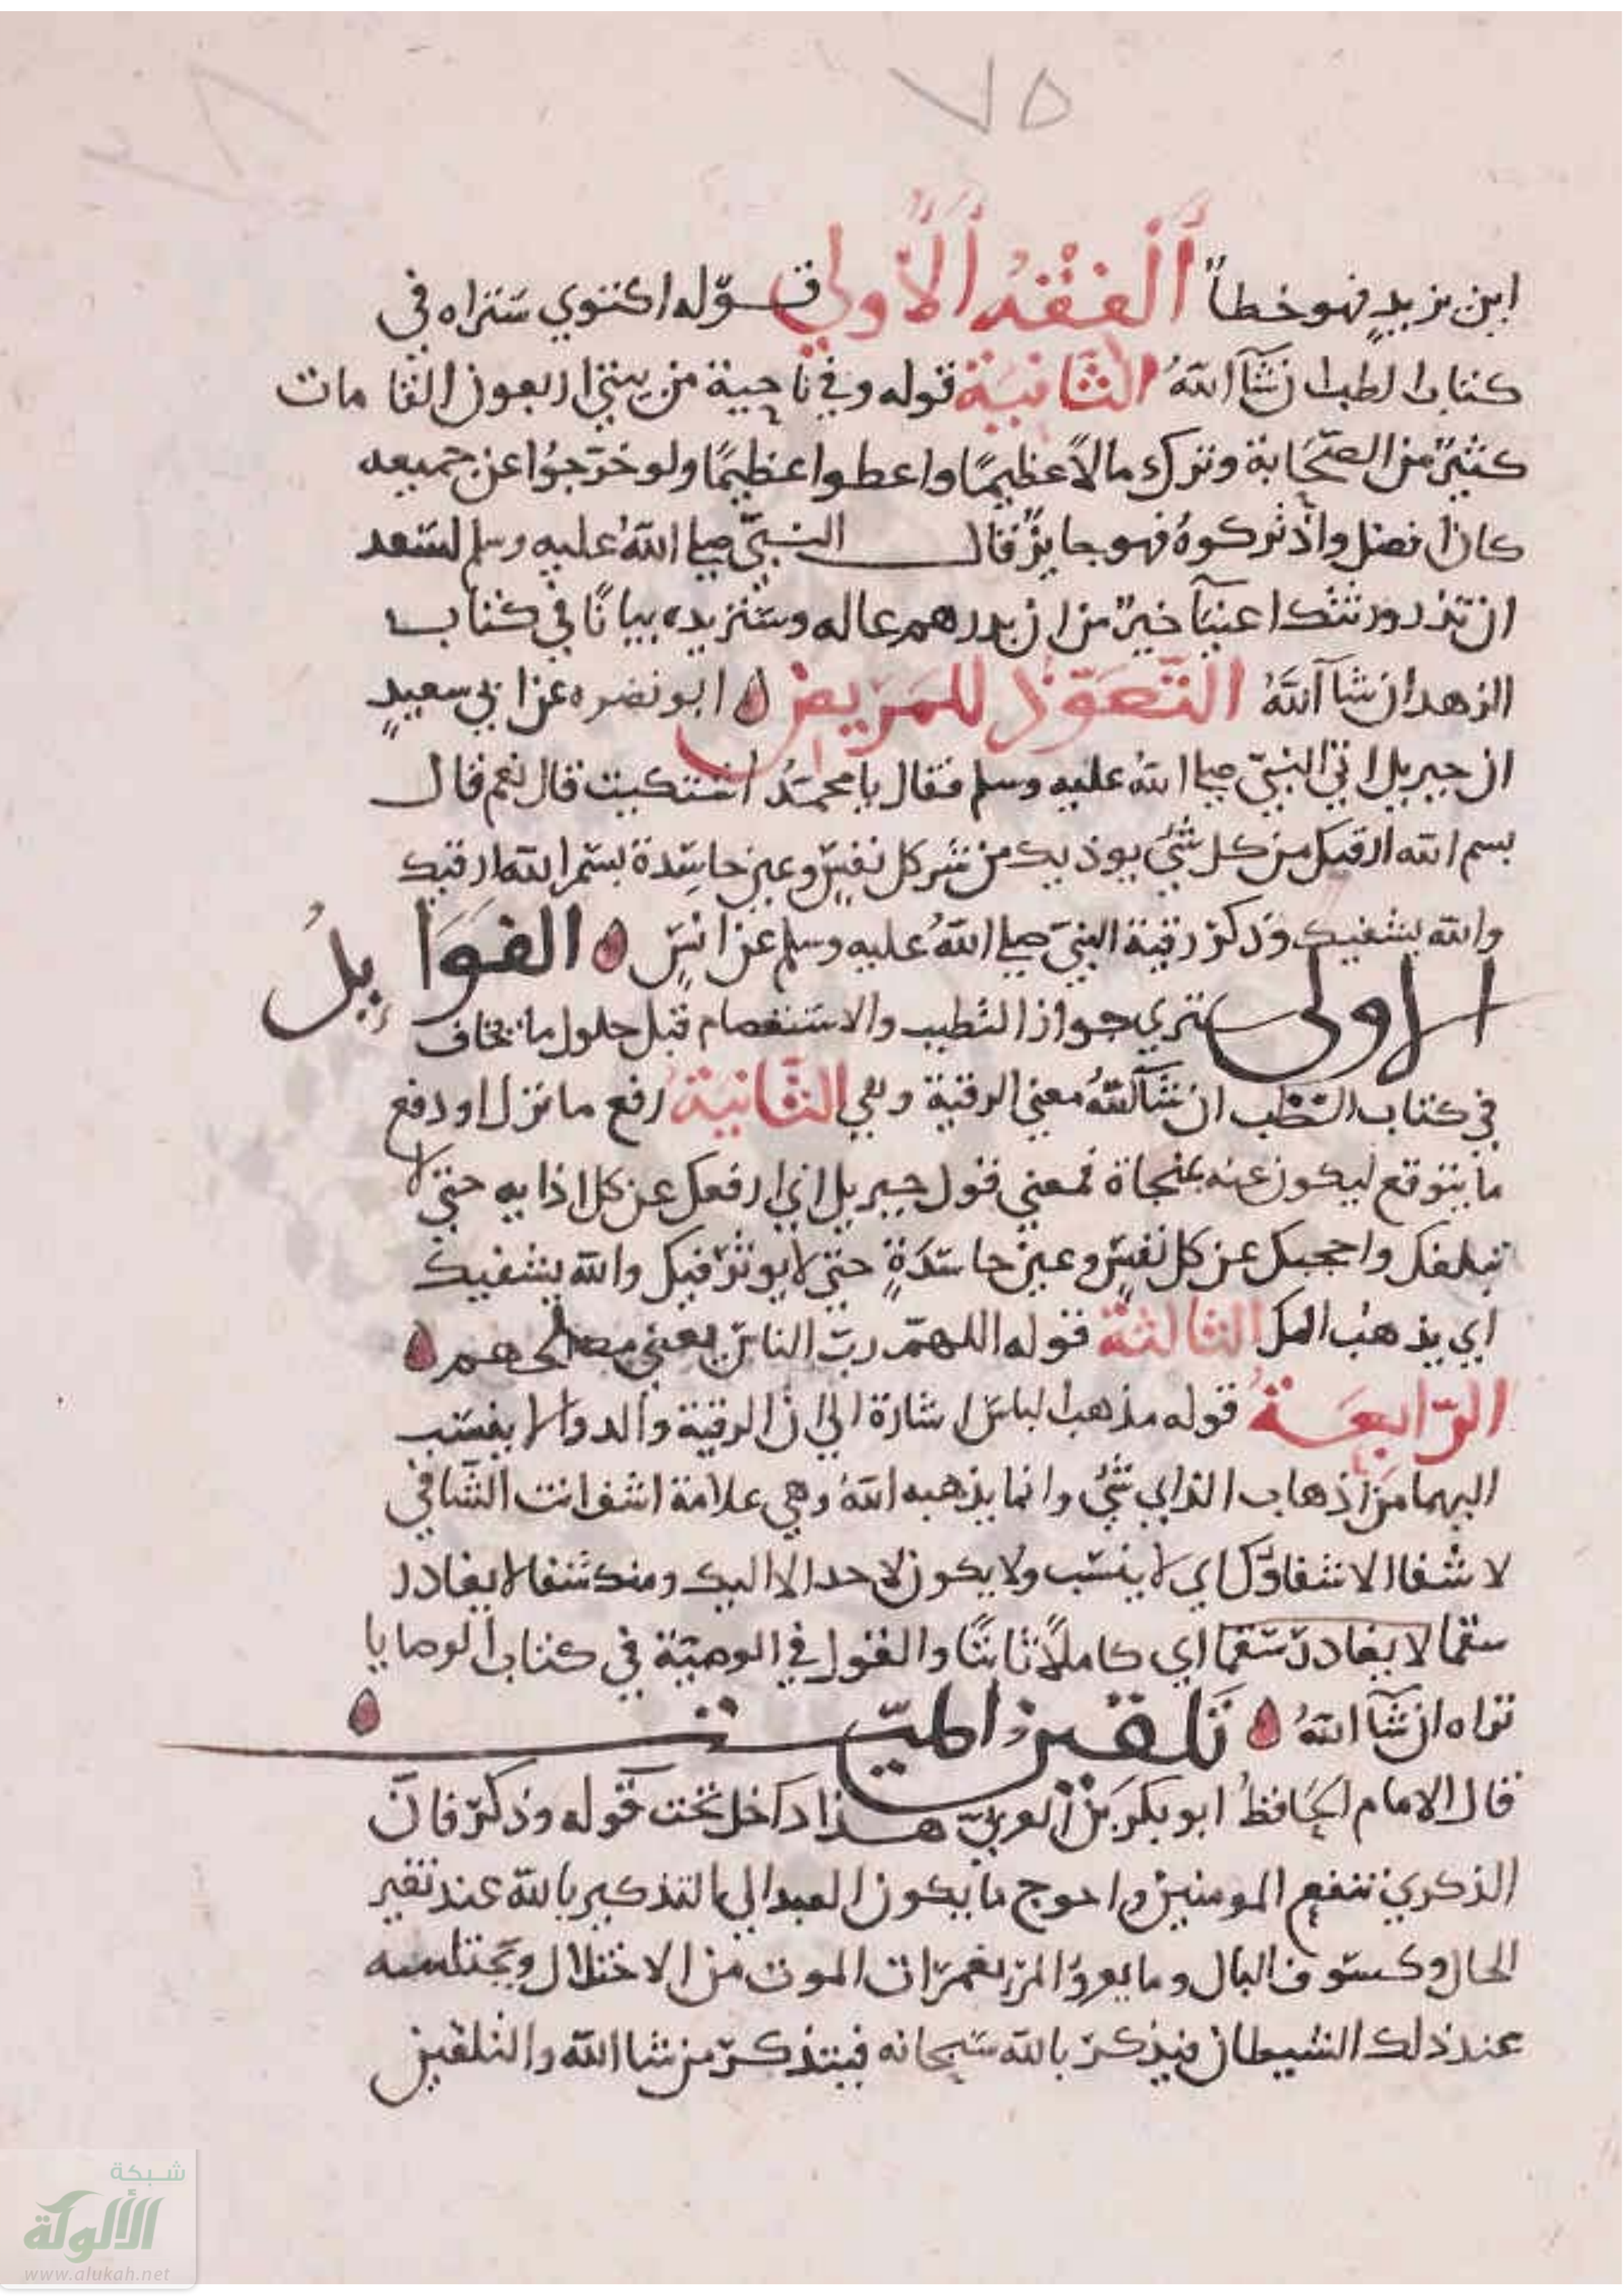 ٧٥
ابن يزيدٍ فهو خطأ الفقه الأولى قوله اكتوي ستراه في
كتاب الطب ان شآ الله الثانية قوله وفي ناحية من بيتي اربعون الفا مات
كثيرٌ من الصّحابة وترك مالاً عظيمًا واعطوا عظيمًا ولو خرّجوا عن جميعه
كان افضل واذ تركوهُ فهو جايزٌ قال النبيّ صلى اللهُ عليه وسلم لسَعد
ان تذر ورثتك اغنيآ خيرٌ من ان تدرهم عاله وستزيده بيانًا في كتاب
الزهد ان شآ اللهُ التّعوّذ للمريض ابو نضره عن ابي سعيدٍ
ان جبريل اتى النبيّ صلى اللهُ عليه وسلم فقال يا محمّدُ اشتكيت قال نعم قال
بسم الله ارقيك من كل شيٍ يوذيك من شر كل نفسٍ وعين حاسِدة بسم الله ارقيك
والله يشفيك وذكر رقية النبيّ صلى اللهُ عليه وسلم عن انسٍ الفوايدُ
الاولى ستري جواز التطبب والاستعصام قبل حلول ما يخاف
في كتاب الطب ان شآ اللهُ معنى الرقية وهي الثانيةُ رفع ما نزل او دفع
ما يتوقع ليكون عنه بمنجاة فمعنى قول جبريل اني ارفعك عن كل اذايه حتى لا
تبلغك واحجبك عن كل نفسٍ وعين حاسدَةٍ حتى لا يوثر فيك والله يشفيك
اي يذهب الكل الثالثة قوله اللهمّ ربّ الناس يعني مصلحهم
الرّابعةُ قوله مذهب الباس اشارة الى ان الرقية والدوا لا ينسَب
اليهما من اذهاب الداي شيٌ وانما يذهبه اللهُ وهي علامة اشف انت الشافي
لا شفا الا شفاوُك اي لا ينسَب ولا يكون لاحد الا اليك ومنك شفا لا يغادر
سقما لا يغادر سَقما اي كاملاً ثابتًا والقول في الوصيّة في كتاب الوصايا
تراه ان شآ اللهُ تلقين الميّت
قال الامام الحَافظُ ابو بكر بن العربيّ هذا داخل تحت قوله وذكّر فانّ
الذكرى تنفع المومنين واحوج ما يكون العبد الى التذكير بالله عند تغير
الحال وكسوف البال وما يعرو المر بغمرات الموت من الاختلال ويختلسه
عند ذلك الشيطان فيذكّر بالله سبحانه فيتذكّر من شا الله والتلقين
شبكة
الألوكة
www.alukah.net